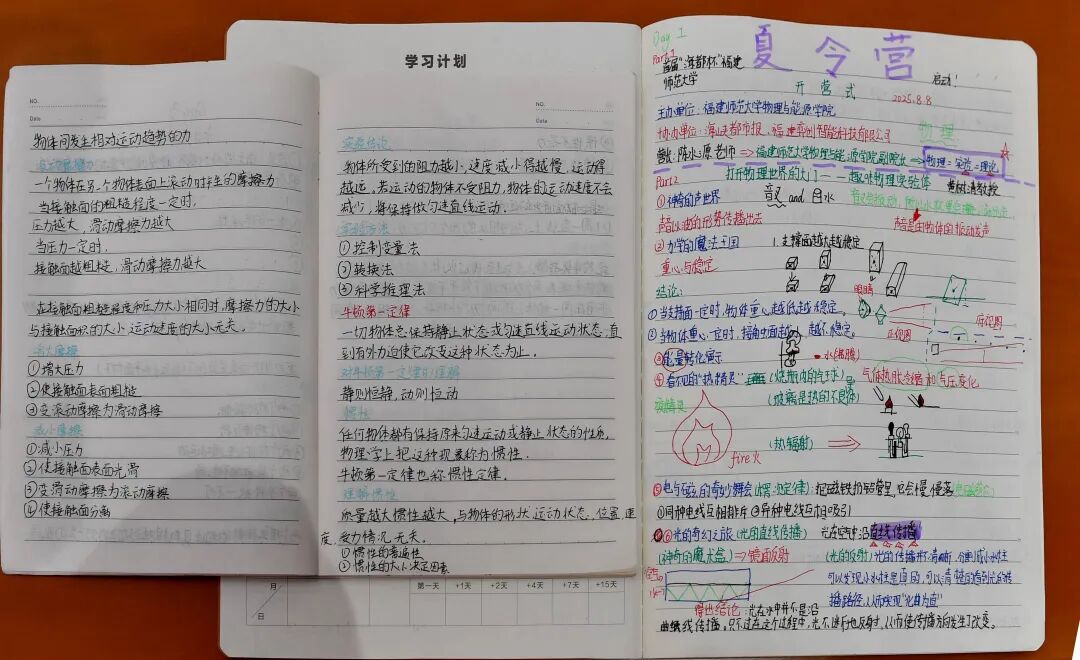 NO.
Date
物体间发生相对运动趋势的力
滚动摩擦力
一个物体在另一个物体表面上滚动时产生的摩擦力
当接触面的粗糙程度一定时，
压力越大，滑动摩擦力越大
当压力一定时，
接触面越粗糙，滑动摩擦力越大
在接触面粗糙程度和压力大小相同时，摩擦力的大小
与接触面积的大小、运动速度的大小无关。
增大摩擦
①增大压力
②使接触面表面粗糙
③变滚动摩擦为滑动摩擦
减小摩擦
①减小压力
②使接触面表面光滑
③变滑动摩擦为滚动摩擦
④使接触面分离
学习计划
NO.
Date
实验结论
物体所受到的阻力越小，速度减小得越慢，运动得
越远，若运动的物体不受阻力，物体的运动速度不会
减少，将保持做匀速直线运动.
实验方法
①控制变量法
②转换法
③科学推理法
牛顿第一定律
一切物体总保持静止状态或匀速直线运动状态，直
到有外力迫使它改变这种状态为止.
对牛顿第一定律的理解
静则恒静，动则恒动
惯性
任何物体都有保持原来匀速运动或静止状态的性质，
物理学上把这种现象称为惯性.
牛顿第一定律也称惯性定律.
理解惯性
质量越大惯性越大，与物体的形状、运动状态、位置、速
度、受力情况无关。
①惯性的普遍性
②惯性的大小决定因素
月
日
第一天 +1天 +2天 +4天 +7天 +15天
Day 1
夏令营
Part 1
首届"海都杯"福建
师范大学
启动！
开营式
2025.8.8
主办单位：福建师范大学物理与能源学院
协办单位：海峡都市报、福建 智能科技有限公司
物理
陈水源老师 ⇒ 福建师范大学物理与能源学院副院长 ⇒ 物理=实验+理论
Part 2
打开物理世界的大门——趣味物理实验体
黄树清教授
①神奇的声世界
音叉 and 白水
声音以波的形势传播出去
声音是由物体的振动发声
②力学的魔法王国
1.支撑面越大越稳定
重心与稳定
结论：
眼睛
俯视图
①当支撑面一定时，物体重心越低越稳定。
正视图
②当物体重心一定时，接触面越大，越不稳定。
③能量转化演示
水(沸腾)
④看不见的"热精灵"
(烧瓶内的气球)
气体热胀冷缩和气压变化
(玻璃是热的不良体)
fire火
(热辐射)
⑤电与磁的奇妙舞会(楞次定律)：把磁铁扔到管里，它会慢慢落
①同种电线互相排斥②异种电线互相吸引
⑥光的奇幻之旅(光的直线传播)
光在空气中沿直线传播
(神奇的魔术盒)⇒镜面反射
(光的反射)
得出结论：光在水中并不是沿
曲线传播，只不过在这个过程中，光不断地反射，从而使传播方向发生了改变。